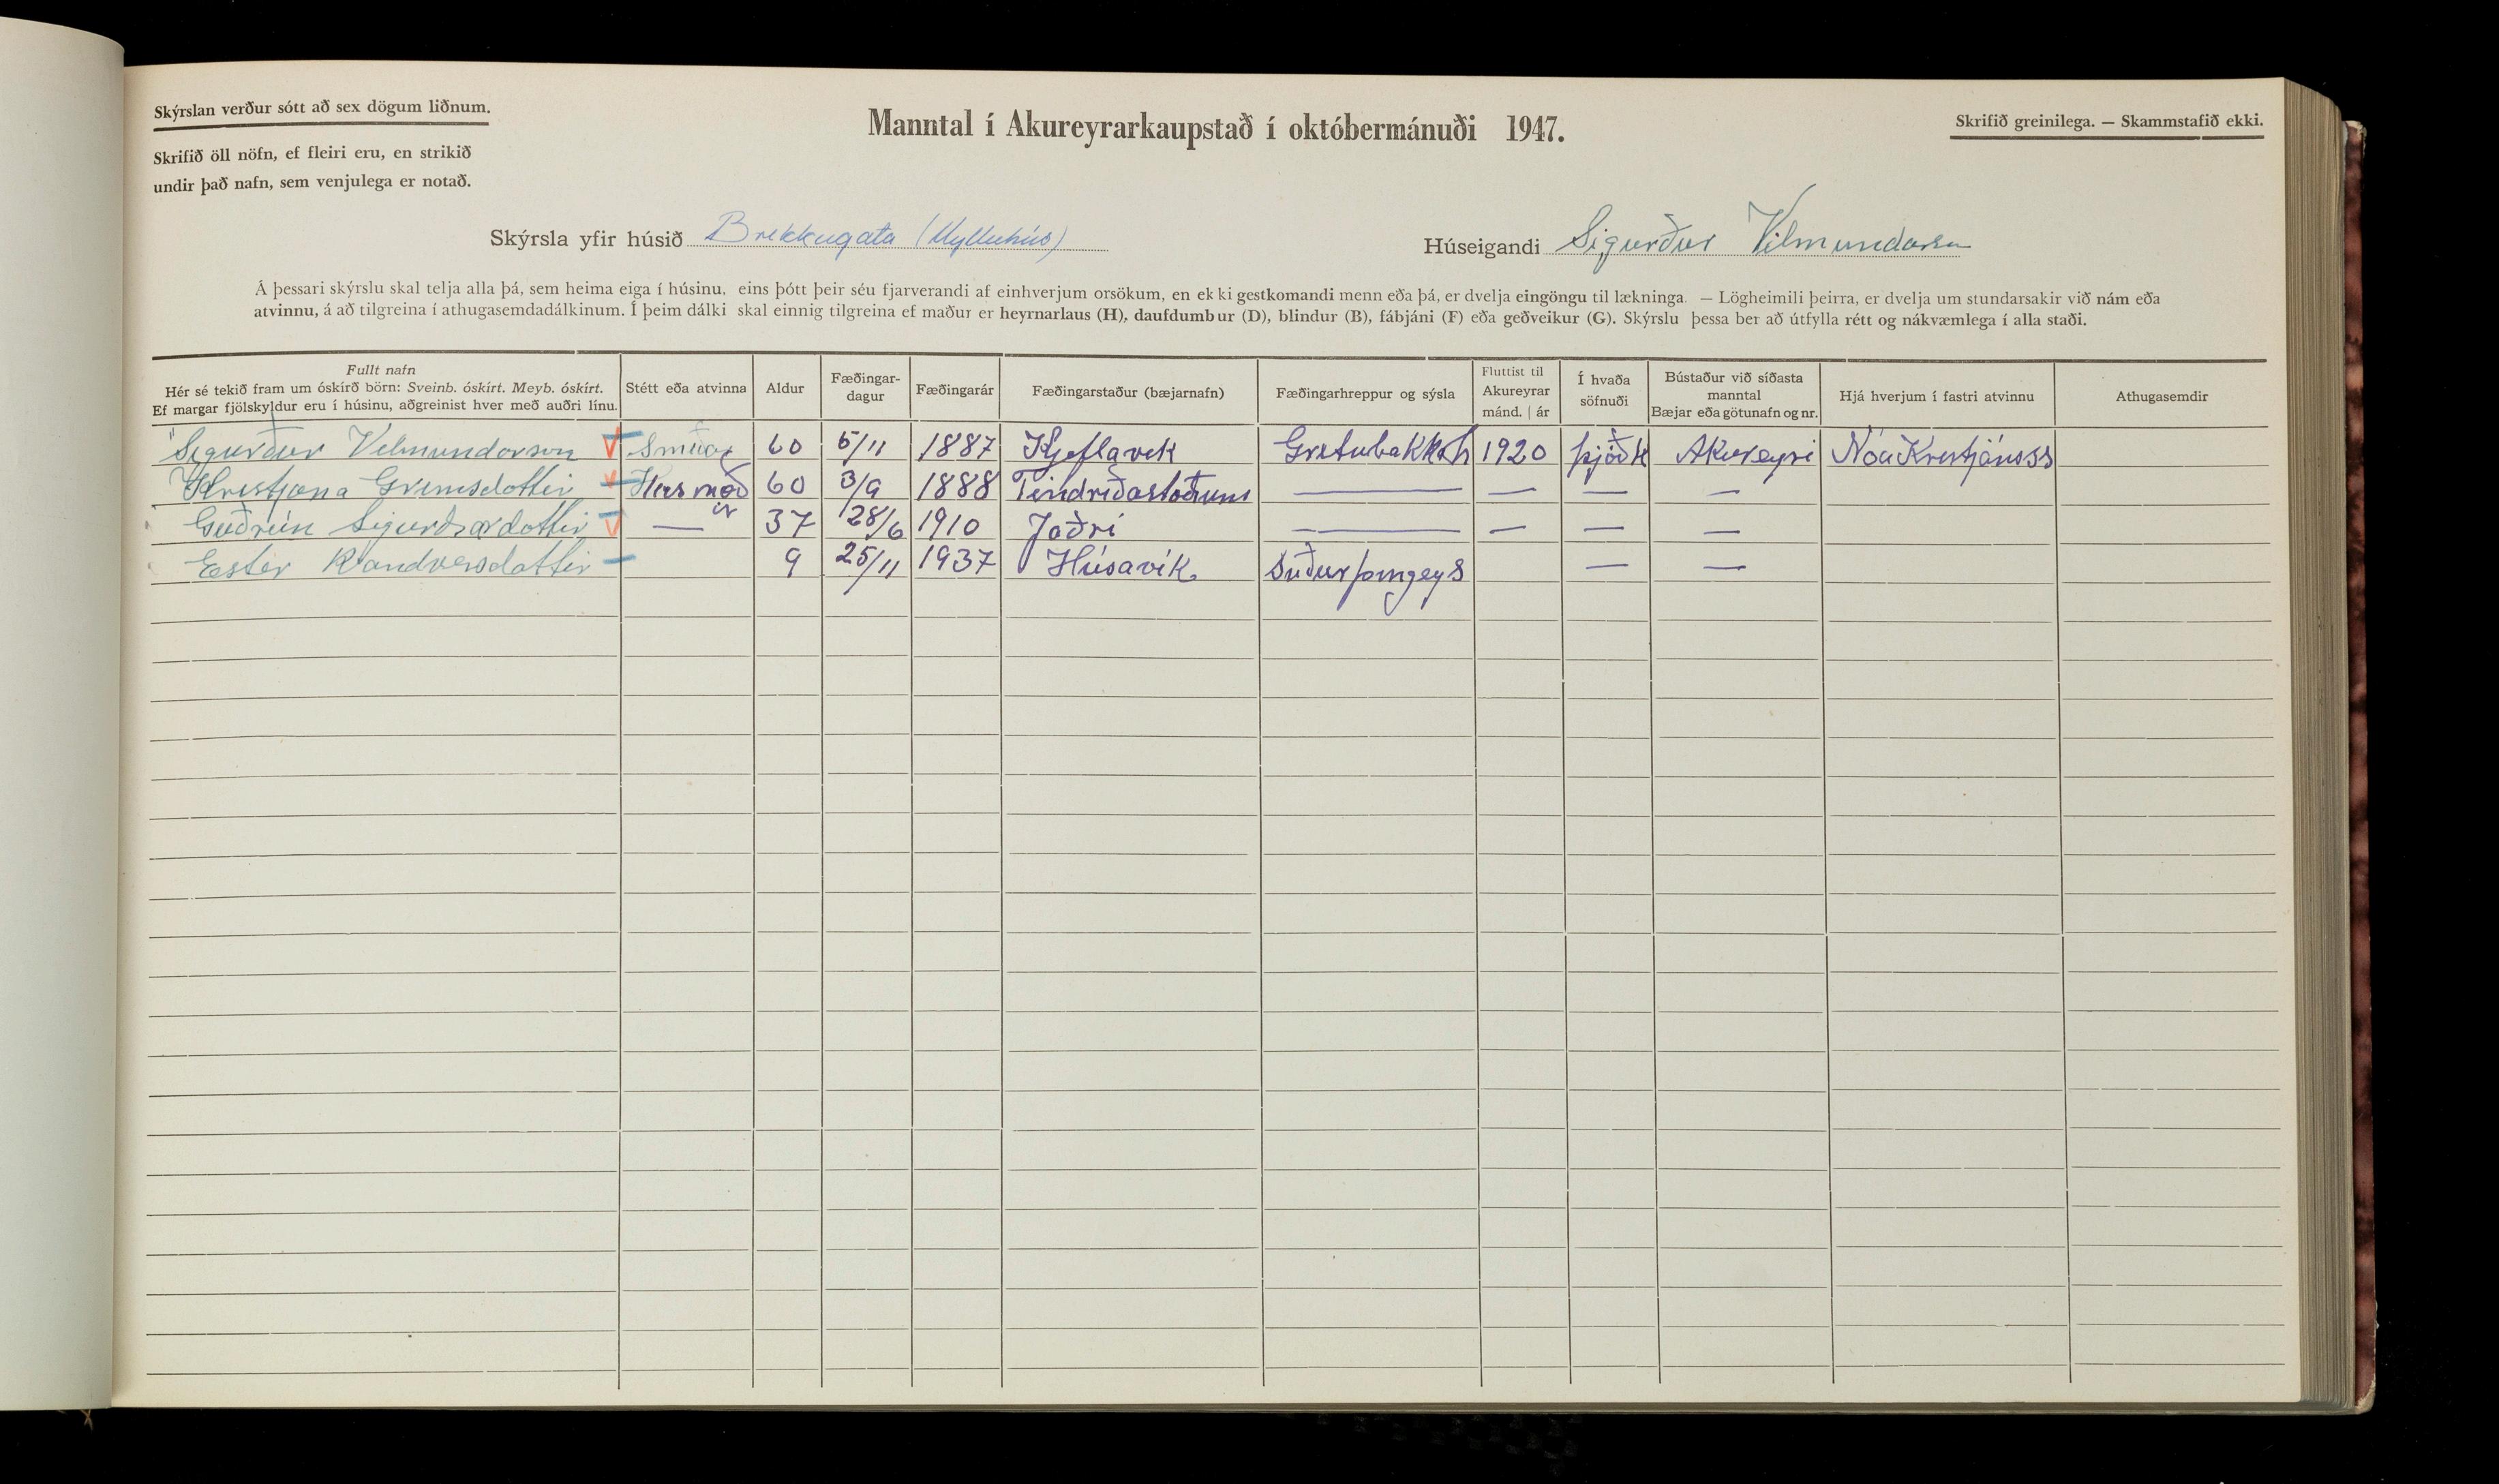 Skýrslan verður sótt að sex dögum liðnum.
Skrifið öll nöfn, ef fleiri eru, en strikið
undir það nafn, sem venjulega er notað.
Manntal í Akureyrarkaupstað í októbermánuði 1947.
Skrifið greinilega. — Skammstafið ekki.
Skýrsla yfir húsið Brekkugata (Mylluhús)
Húseigandi Sigurður Vilmundarson
Á þessari skýrslu skal telja alla þá, sem heima eiga í húsinu, eins þótt þeir séu fjarverandi af einhverjum orsökum, en ekki gestkomandi menn eða þá, er dvelja eingöngu til lækninga. — Lögheimili þeirra, er dvelja um stundarsakir við nám eða
atvinnu, á að tilgreina í athugasemdadálkinum. Í þeim dálki skal einnig tilgreina ef maður er heyrnarlaus (H), daufdumbur (D), blindur (B), fábjáni (F) eða geðveikur (G). Skýrslu þessa ber að útfylla rétt og nákvæmlega í alla staði.
Fullt nafn
Hér sé tekið fram um óskírð börn: Sveinb. óskírt. Meyb. óskírt.
Ef margar fjölskyldur eru í húsinu, aðgreinist hver með auðri línu.
Stétt eða atvinna
Aldur
Fæðingar-
dagur
Fæðingarár
Fæðingarstaður (bæjarnafn)
Fæðingarhreppur og sýsla
Fluttist til
Akureyrar
mánd. | ár
Í hvaða
söfnuði
Bústaður við síðasta
manntal
Bæjar eða götunafn og nr.
Hjá hverjum í fastri atvinnu
Athugasemdir
Sigurður Vilmundarson Smiður 60 5/11 1887 Kjeflavik Grítubakkah 1920 þjóðk Akureyri Nóa Kristjánss
Kristjana Grimsdottir Husmóðir 60 3/9 1888 Tindriðastoðum — — — —
Guðrún Sigurðsardottir — 37 28/6 1910 Jaðri — — — —
Ester Randversdottir 9 25/11 1937 Húsavík Suðurþingeys — —